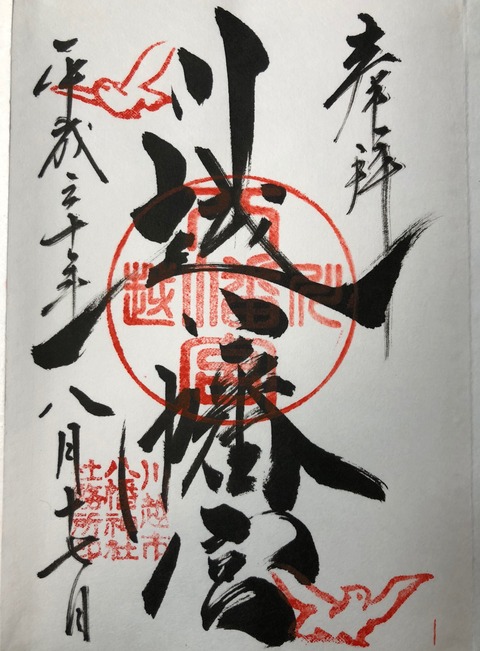 奉拝
川越八幡宮
平成三十年八月十七日
川越市
八幡神社
社務所印